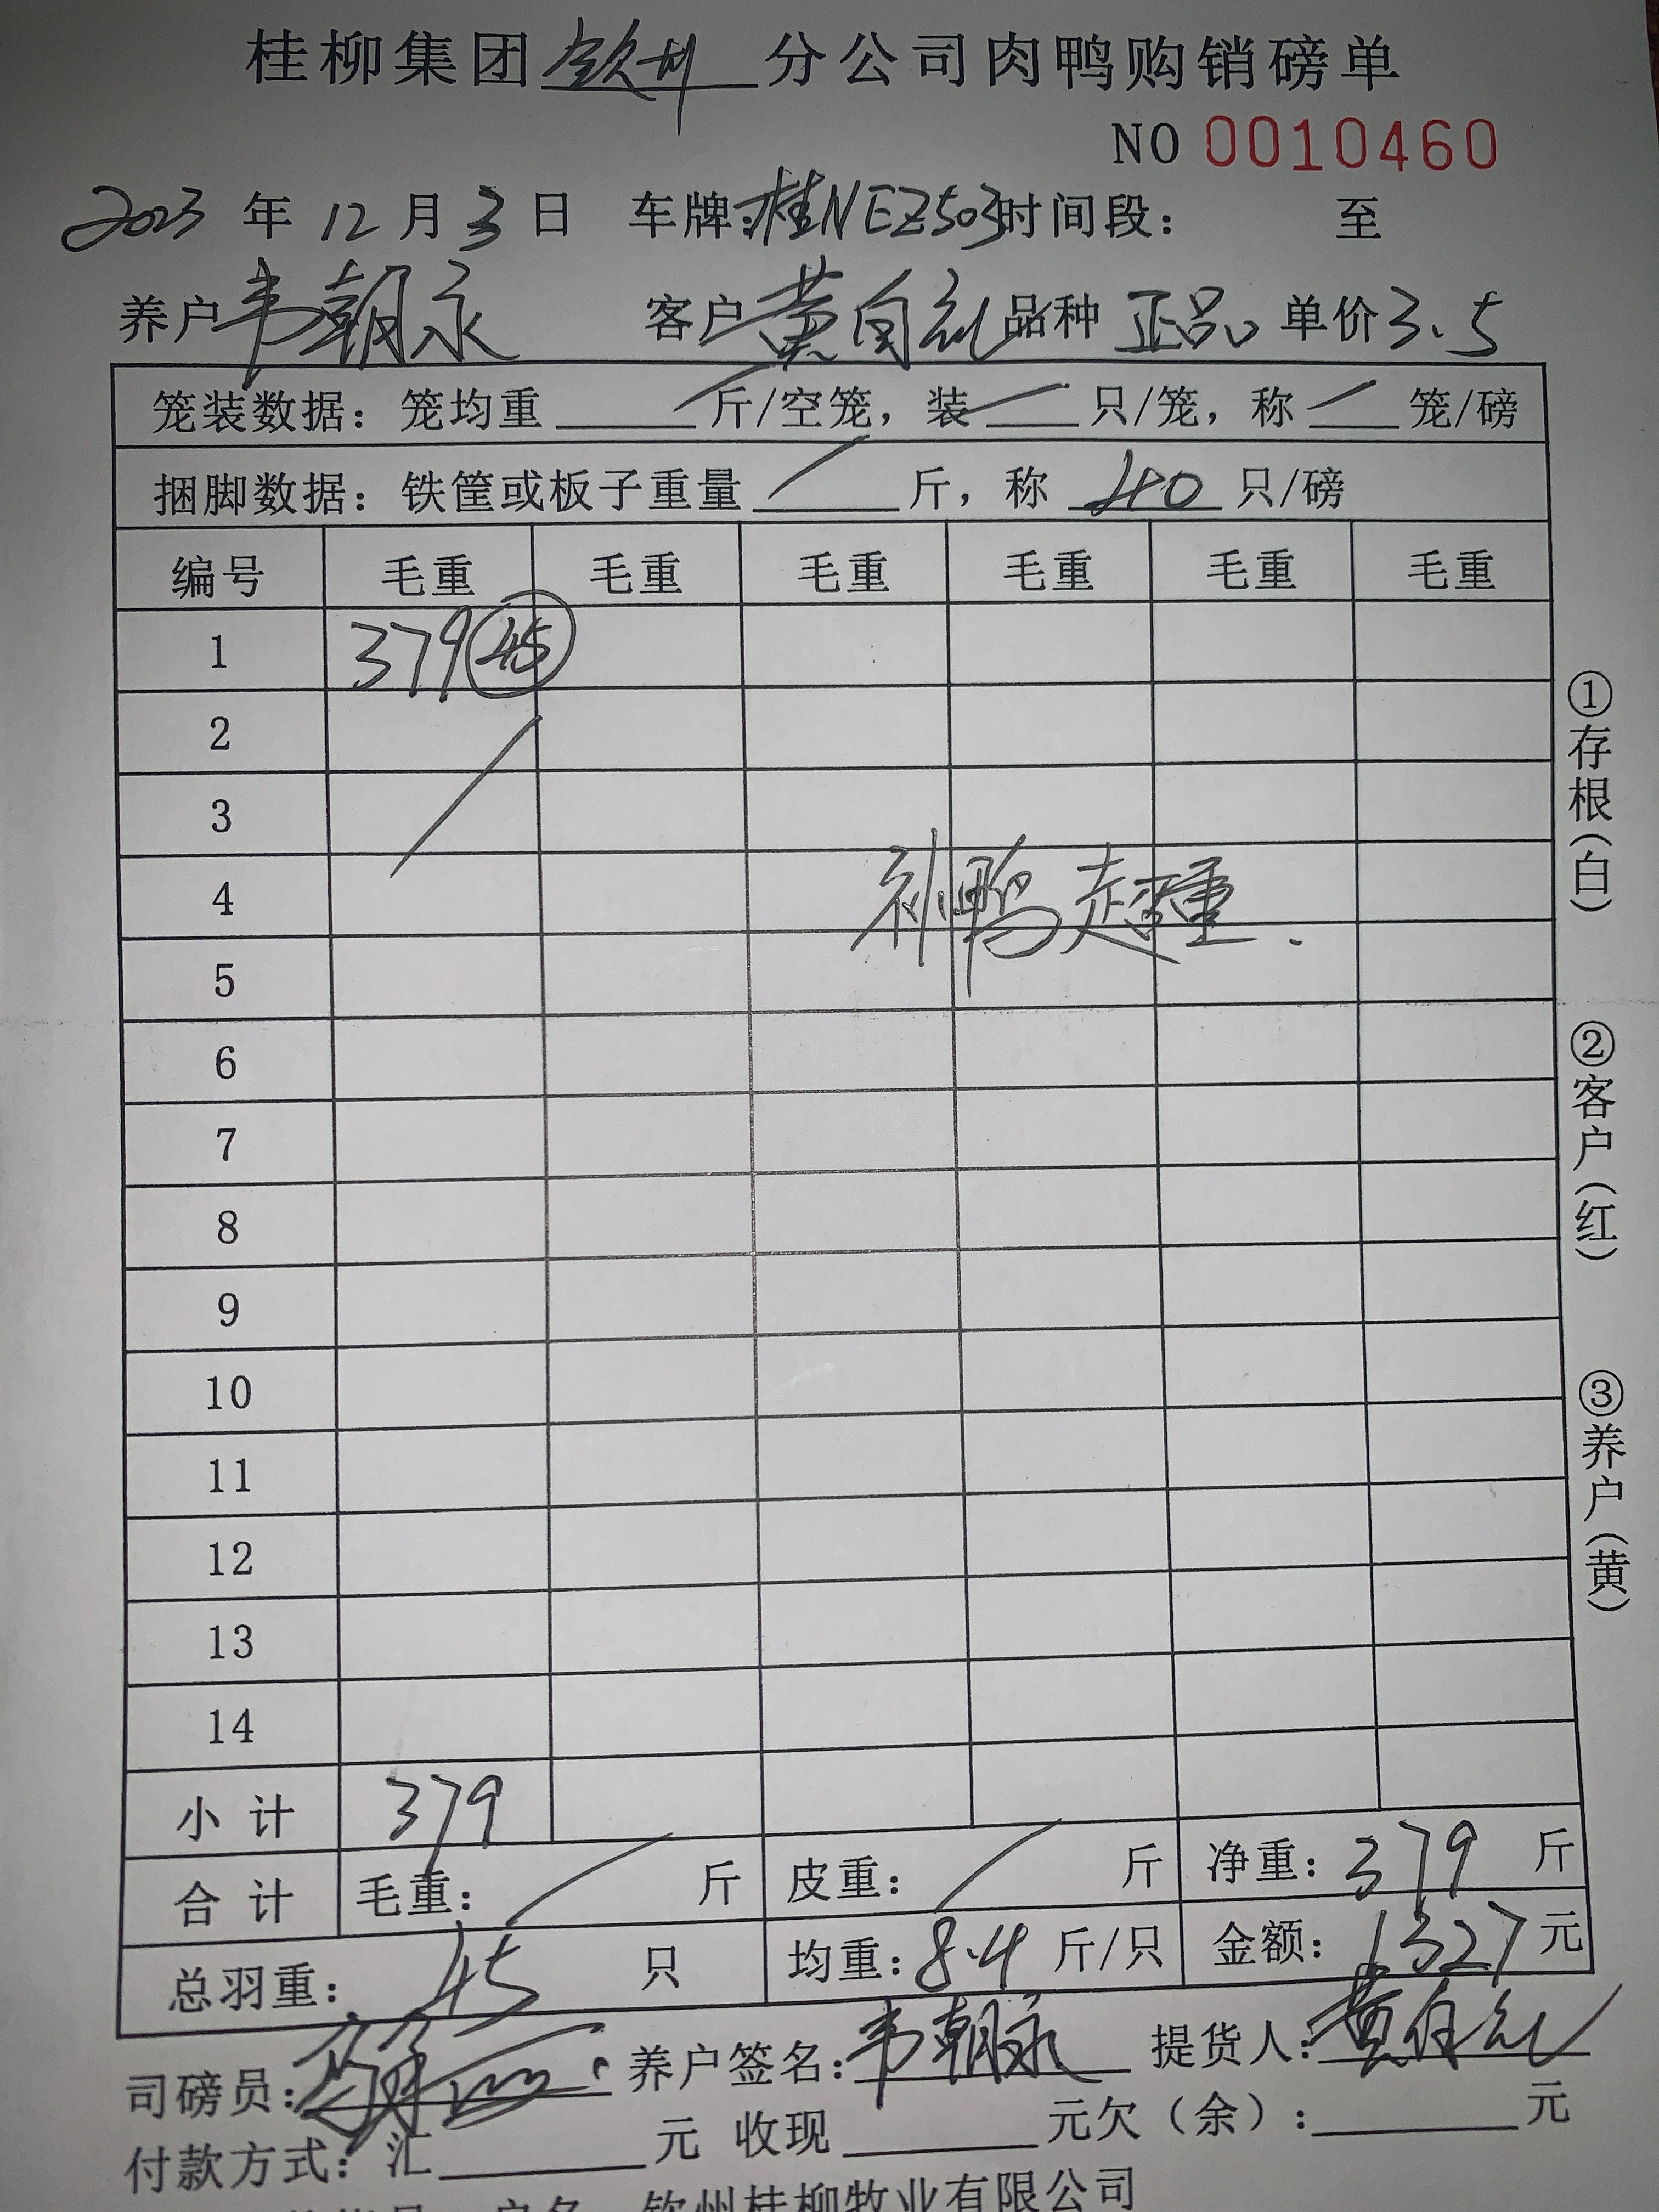 桂柳集团钦州分公司肉鸭购销磅单
NO 0010460
2023年12月3日 车牌:桂NEZ503时间段: 至
养户韦朝永 客户黄自礼品种 正品 单价3.5
笼装数据:笼均重 / 斤/空笼,装 / 只/笼,称 / 笼/磅
捆脚数据:铁筐或板子重量 / 斤,称 40 只/磅
编号 毛重 毛重 毛重 毛重 毛重 毛重
1 379 45
2
3
4 补鸭超重.
5
6
7
8
9
10
11
12
13
14
小 计 379
合 计 毛重: / 斤 皮重: / 斤 净重:379 斤
总羽重: 45 只 均重:8.4 斤/只 金额:1327元
司磅员: 养户签名:韦朝永 提货人:黄自礼
付款方式:汇 元 收现 元欠(余): 元
户名 钦州桂柳牧业有限公司
①存根(白)
②客户(红)
③养户(黄)